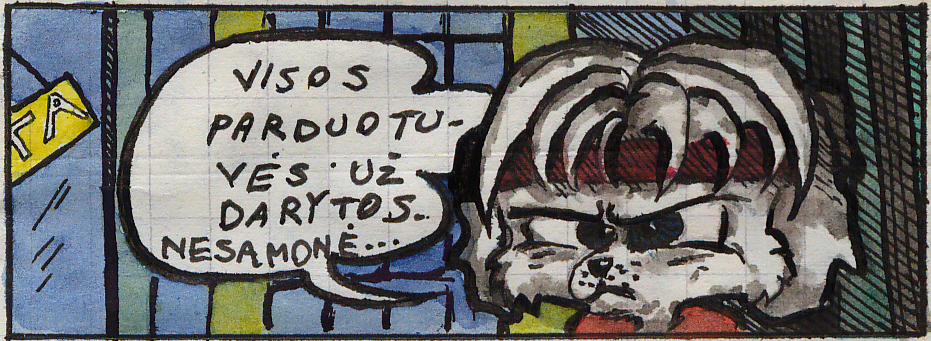 TA
VISOS
PARDUOTU-
VĖS UŽ-
DARYTOS.
NESĄMONĖ...